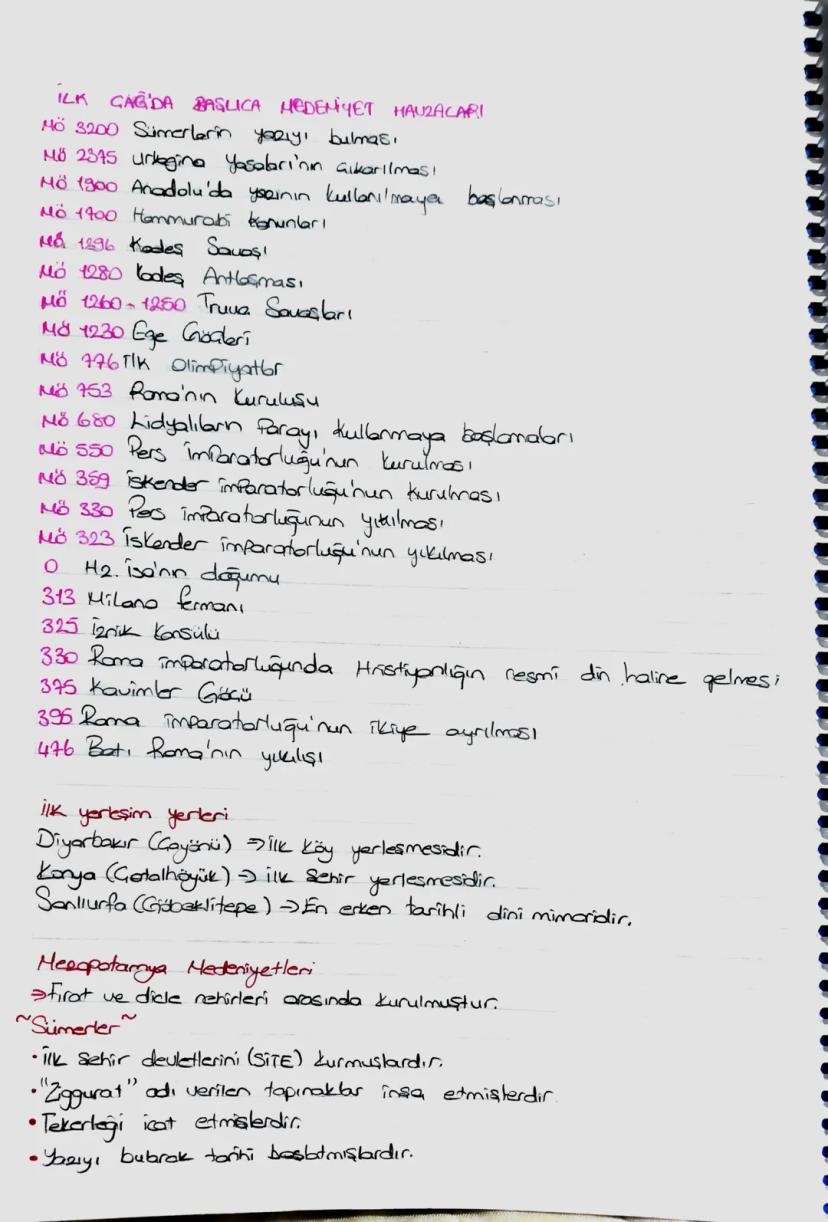 İLK ÇAĞ'DA BAŞLICA MEDENİYET HAVZALARI
MÖ 3200 Sümerlerin yazıyı bulması
MÖ 2375 Urkagina Yasaları'nın çıkarılması
MÖ 1900 Anadolu'da yazının kullanılmaya başlanması
MÖ 1700 Hammurabi Kanunları
MÖ 1296 Kadeş Savaşı
MÖ 1280 Kadeş Antlaşması
MÖ 1260-1250 Truva Savaşları
MÖ 1230 Ege Göçleri
MÖ 776 İlk Olimpiyatlar
MÖ 753 Roma'nın Kuruluşu
MÖ 680 Lidyalıların Parayı kullanmaya başlamaları
MÖ 550 Pers İmparatorluğu'nun kurulması
MÖ 359 İskender İmparatorluğu'nun kurulması
MÖ 330 Pers İmparatorluğunun yıkılması
MÖ 323 İskender İmparatorluğu'nun yıkılması
0 Hz. İsa'nın doğumu
313 Milano fermanı
325 İznik Konsülü
330 Roma İmparatorluğunda Hristiyanlığın resmi din haline gelmesi
375 Kavimler Göçü
395 Roma İmparatorluğu'nun ikiye ayrılması
476 Batı Roma'nın yıkılışı
İlk yerleşim yerleri
Diyarbakır (Çayönü) ⇒ İlk köy yerleşmesidir.
Konya (Çatalhöyük) → İlk Şehir yerleşmesidir.
Şanlıurfa (Göbeklitepe) → En erken tarihli dini mimaridir.
Mezopotamya Medeniyetleri
⇒ Fırat ve dicle nehirleri arasında kurulmuştur.
~Sümerler~
• İlk Şehir devletlerini (SİTE) kurmuşlardır.
• "Ziggurat" adı verilen tapınaklar inşa etmişlerdir
• Tekerleği icat etmişlerdir.
• Yazıyı bularak tarihi başlatmışlardır.